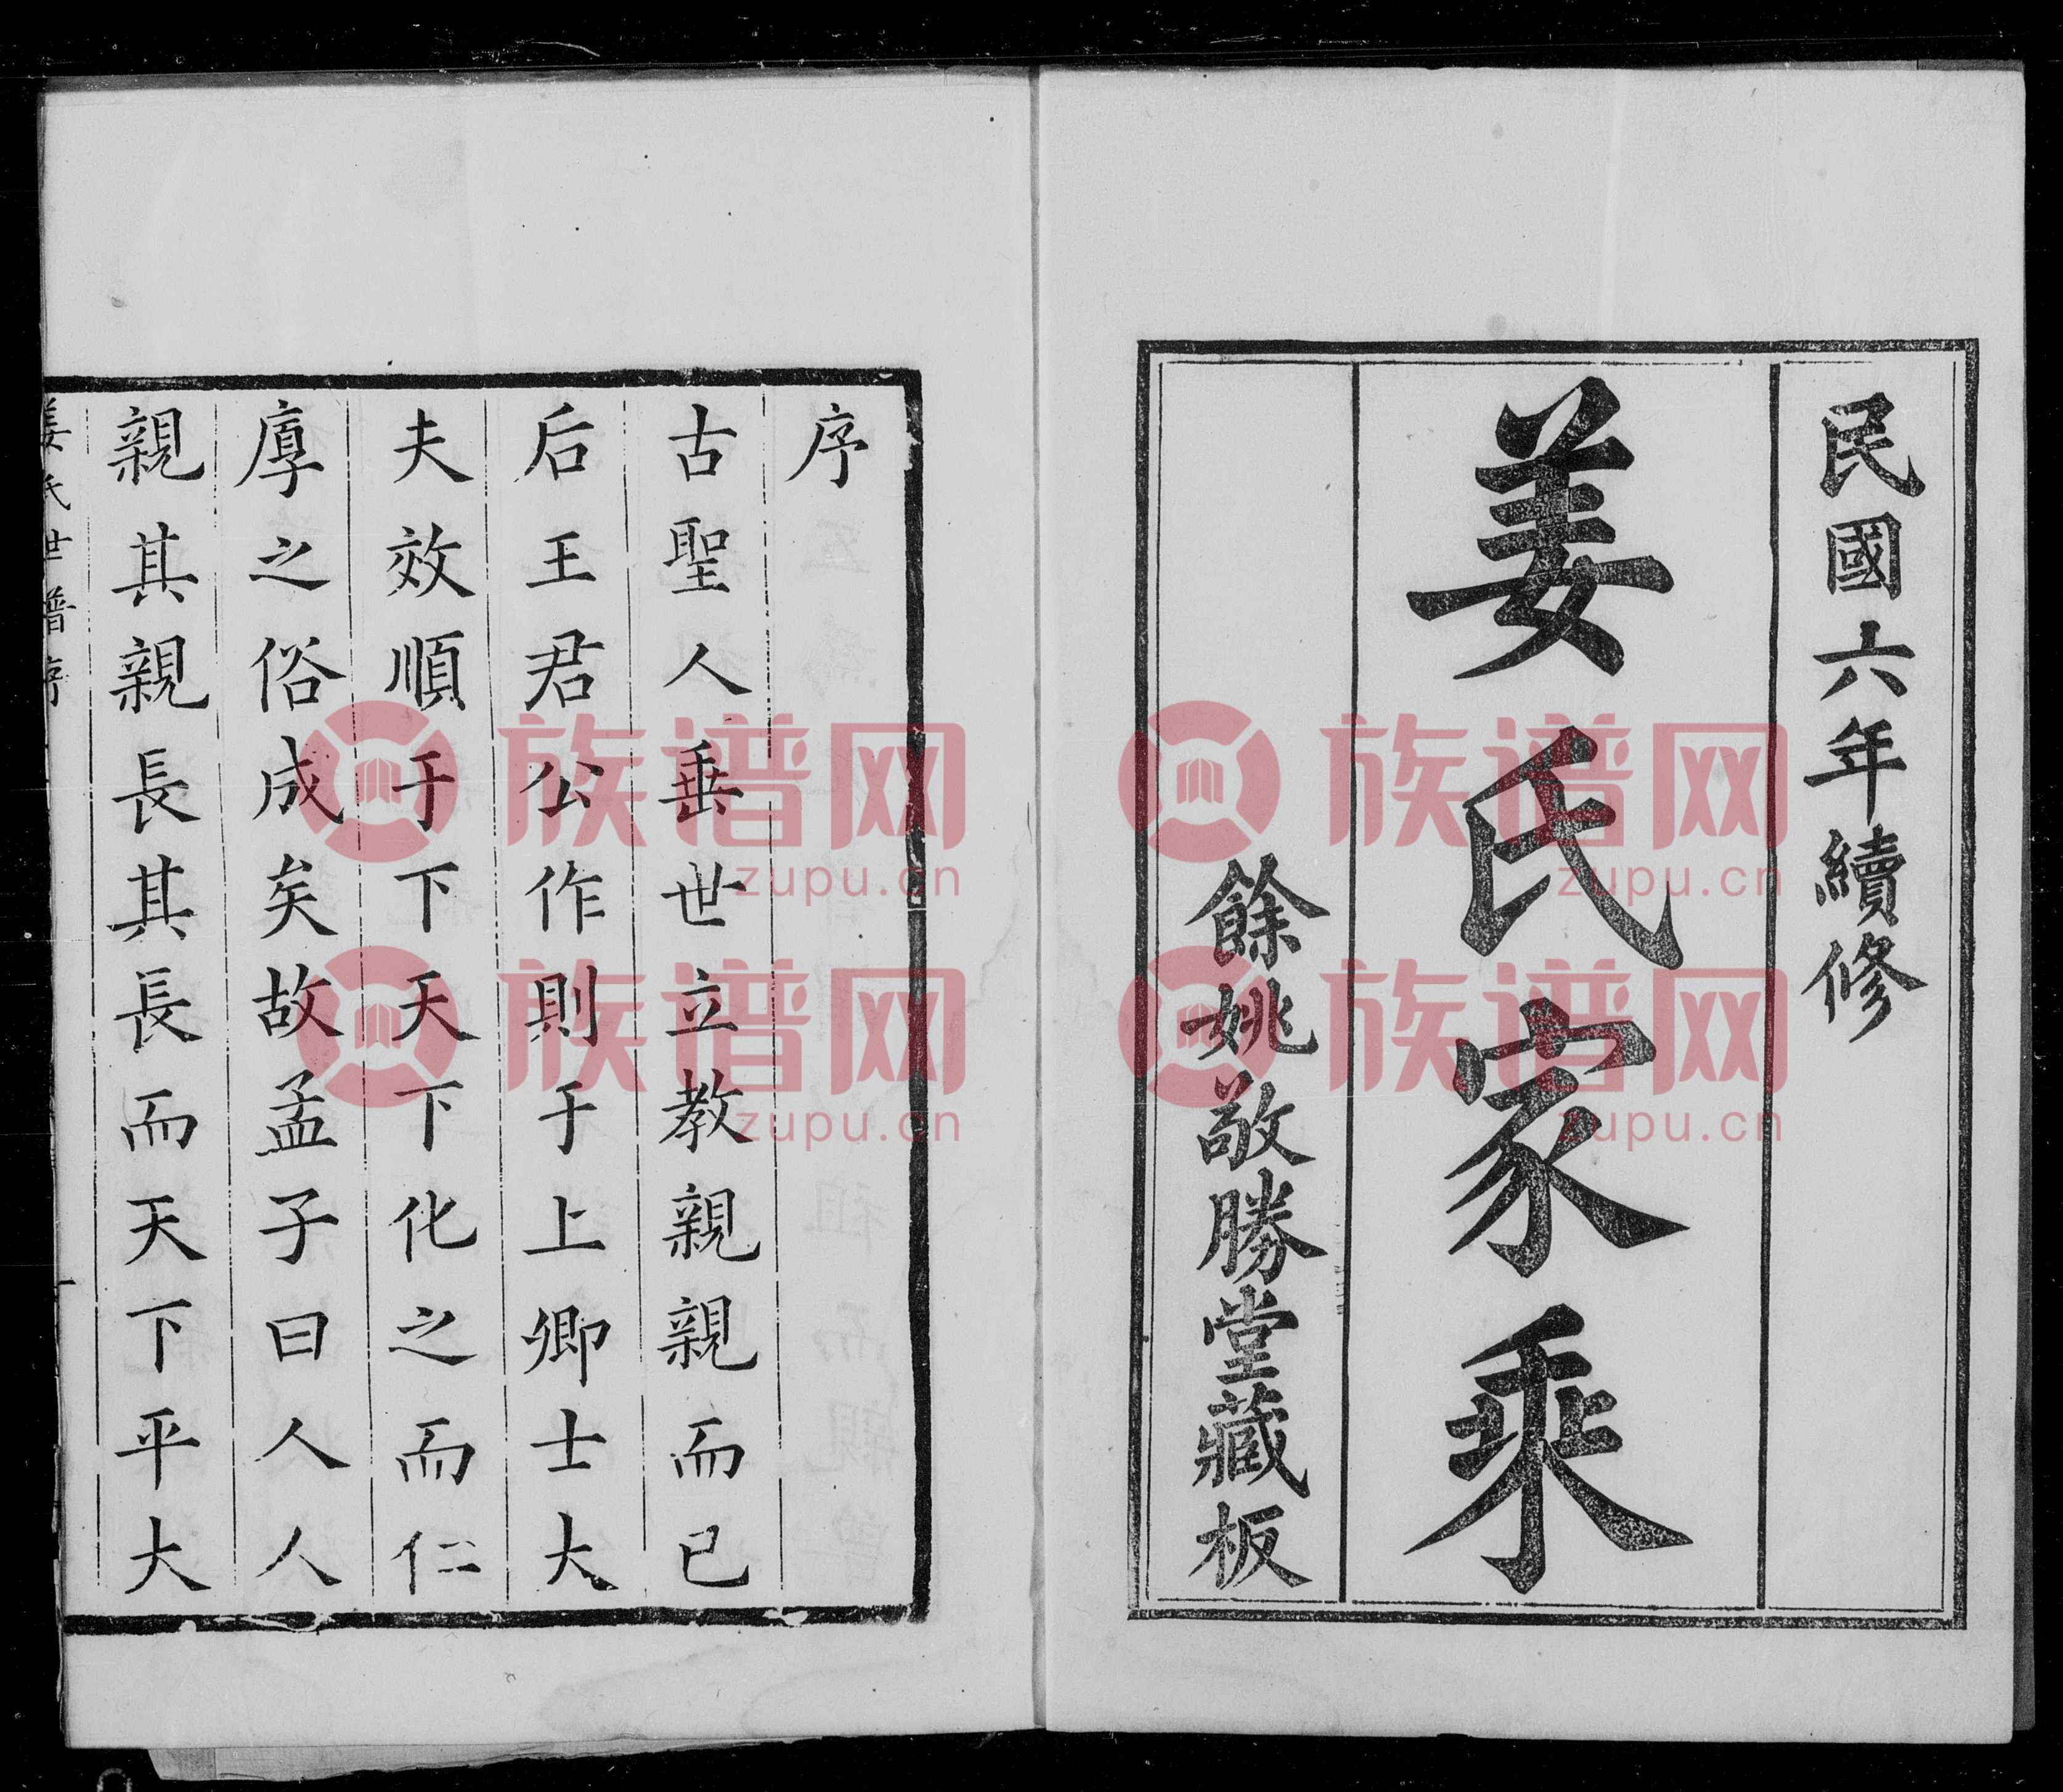 民國六年續修
姜氏家乘
餘姚敬勝堂藏板
序
古聖人垂世立教親親而已
后王君公作則于上卿士大
夫效順于下天下化之而仁
厚之俗成矣故孟子曰人人
親其親長其長而天下平大
姜氏世譜序
一
族谱网
zupu.cn
族谱网
zupu.cn
族谱网
zupu.cn
族谱网
zupu.cn